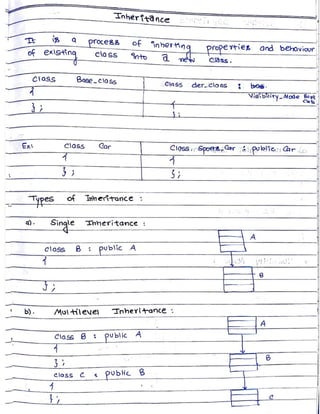 Inheritance
It is a process of inheriting properties and behaviour
of existing class into a new class.
class Base_class
{
};
class der_class : Visibility_Mode Base class
{
};
Ex:
class Car
{
};
Class Sports_Car : public Car
{
};
Types of Inheritance :
a). Single Inheritance :
class B : public A
{
};
A
B
b). Multilevel Inheritance :
Class B : public A
{
};
class C : public B
{
};
A
B
C